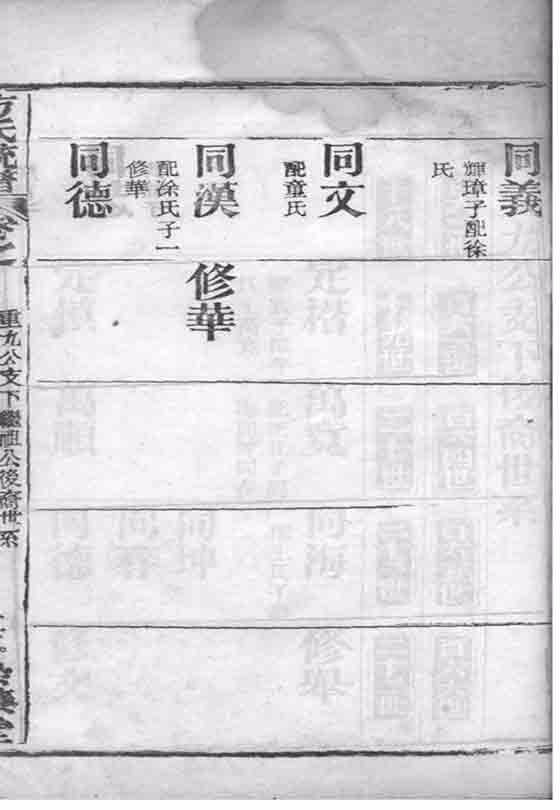 同義
輝璋子配徐
氏
同文
配童氏
同漢
配涂氏子一
修華
修華
同德
方氏統譜
卷之一
重九公支下繼祖公後裔世系